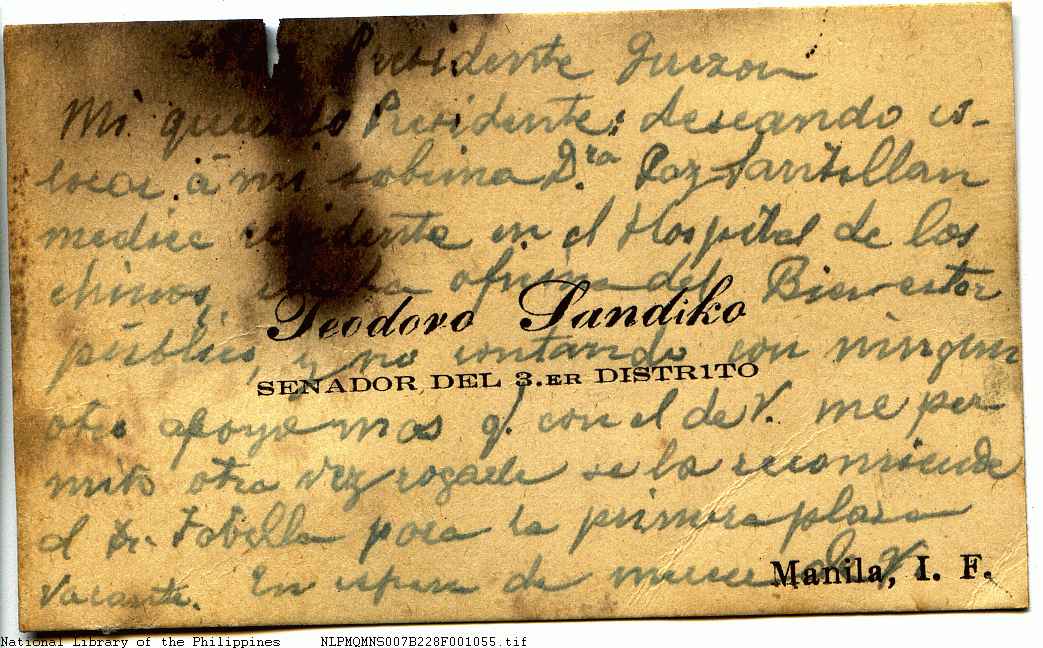 Presidente Quezon
Mi querido Presidente: deseando co-
locar á mi sobrina Dra Paz Santillan
medica residente en el Hospital de los
chinos, en la oficina del Bienestar
Teodoro Sandiko
público, y no contando con ningun
SENADOR DEL 3.ER DISTRITO
otro apoyo mas q. con el de V. me per
mito otra vez rogarle se la recomiende
al Dr. Fabella para la primera plaza
Manila, I. F.
vacante. En espera de merecer de V.
National Library of the Philippines NLPMQMNS007B228F001055.tif